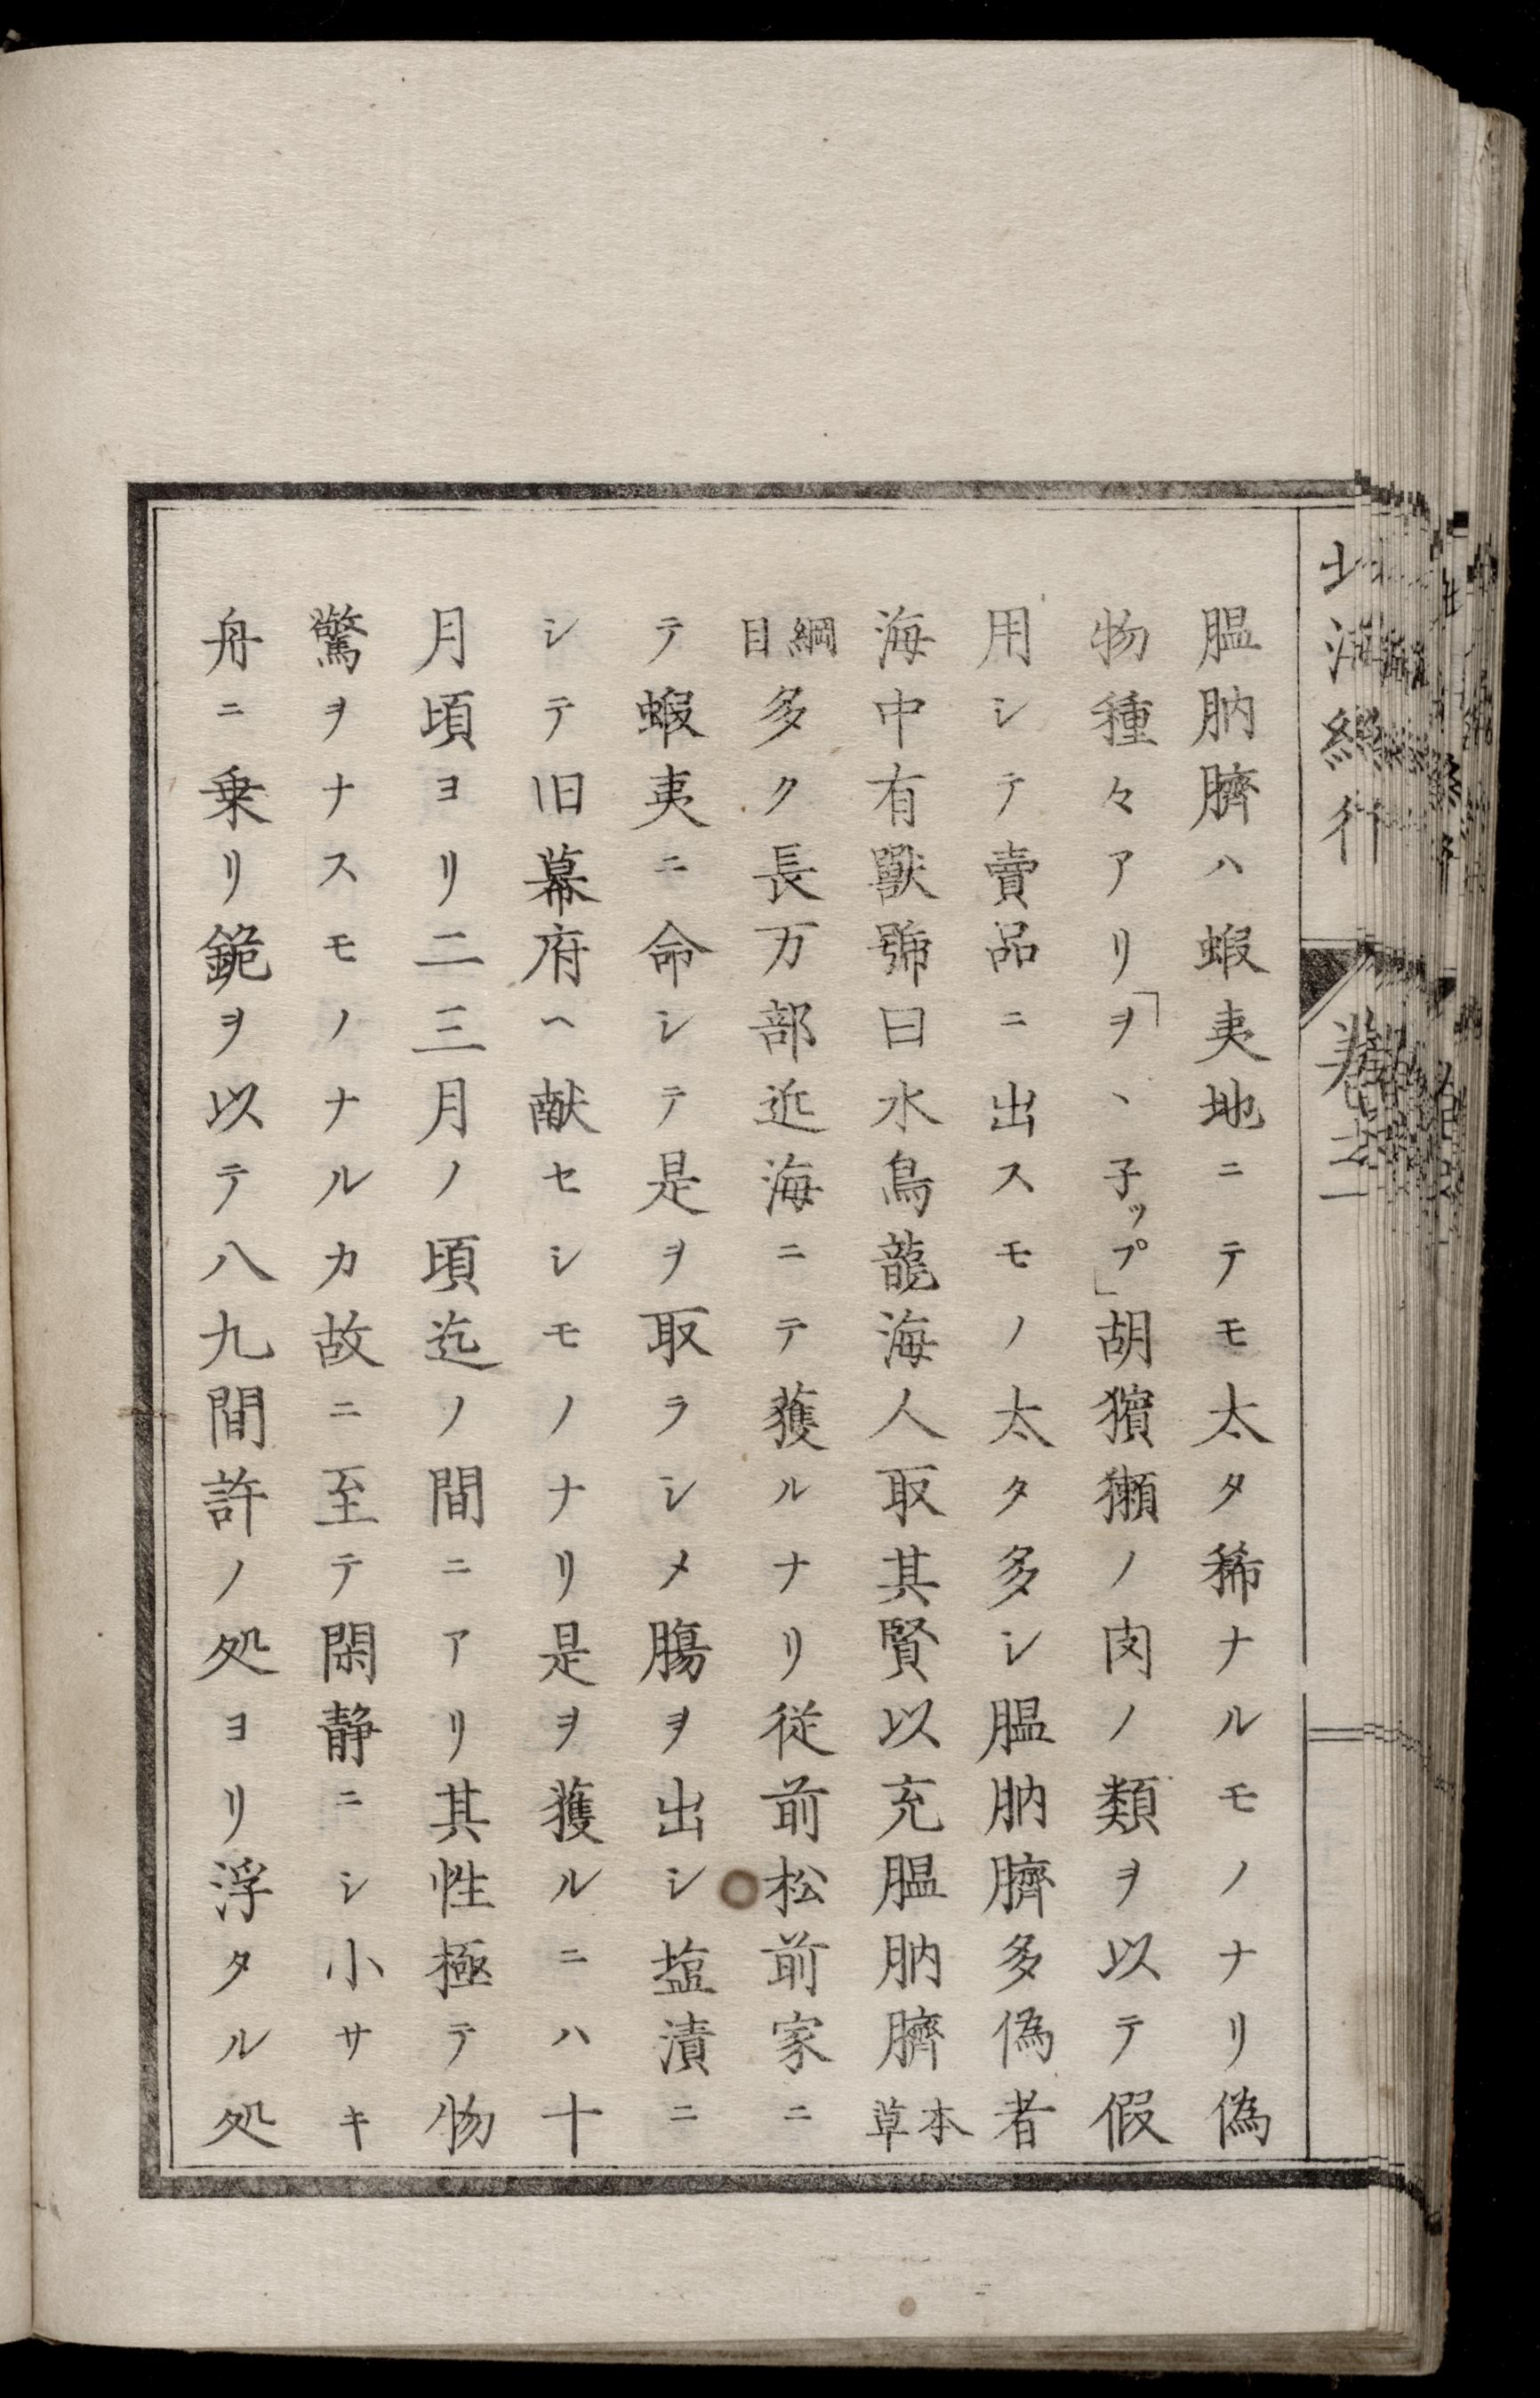 膃肭臍ハ蝦夷地ニテモ太タ稀ナルモノナリ偽
物種々アリ「ヲヽ子ップ」胡獱獺ノ肉ノ類ヲ以テ假
用シテ賣品ニ出スモノ太タ多シ膃肭臍多偽者
海中有獸號曰水烏龍海人取其腎以充膃肭臍本草
綱目多ク長万部近海ニテ獲ルナリ従前松前家ニ
テ蝦夷ニ命シテ是ヲ取ラシメ膓ヲ出シ塩漬ニ
シテ旧幕府ヘ献セシモノナリ是ヲ獲ルニハ十
月頃ヨリ二三月ノ頃迄ノ間ニアリ其性極テ物
驚ヲナスモノナルカ故ニ至テ閑静ニシ小サキ
舟ニ乗リ銛ヲ以テ八九間許ノ処ヨリ浮タル処